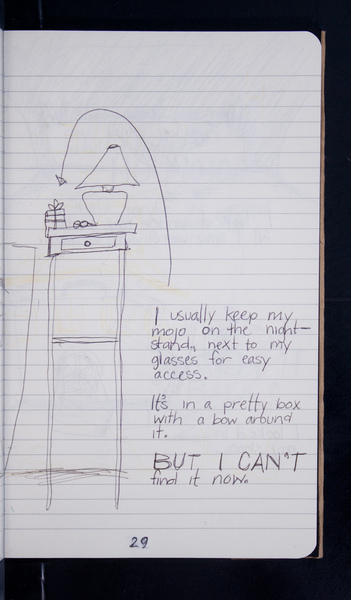 I usually keep my
mojo on the night-
stand, next to my
glasses for easy
access.
It's in a pretty box
with a bow around
it.
BUT I CAN'T
find it now.
29